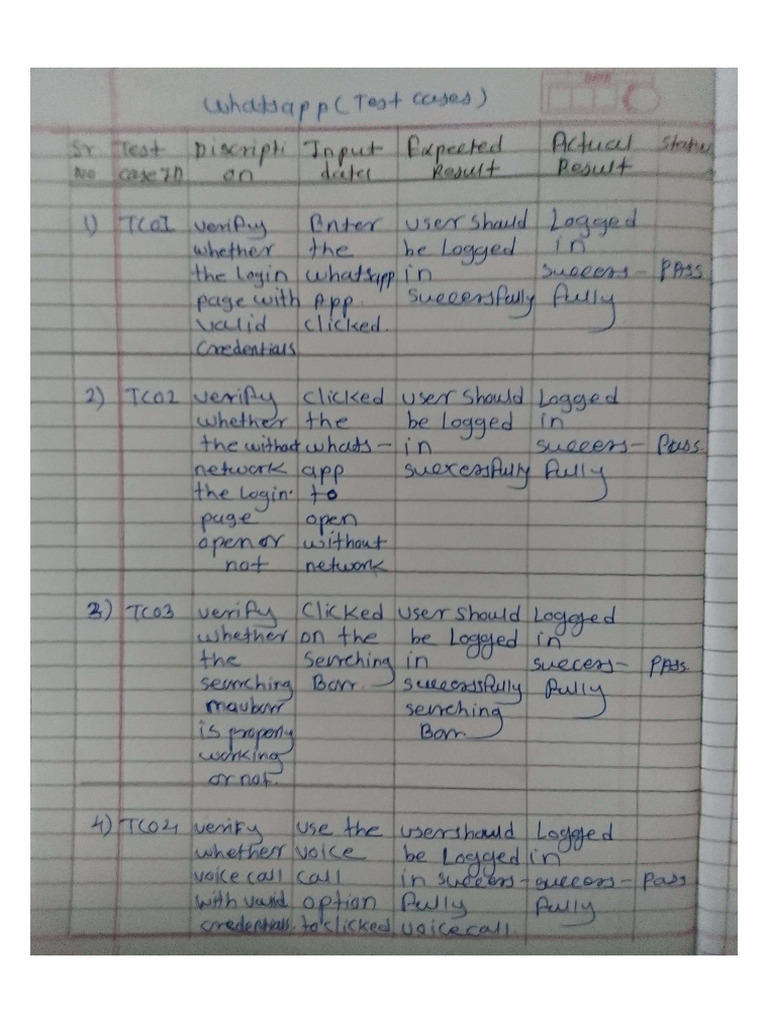 Whatsapp (Test cases)
Sr No | Test case ID | Discripti on | Input datas | Expected Result | Actual Result | Status
1) | TC01 | verify | Enter | user should | Logged
whether | the | be Logged | in
the Login | whatsapp | in | success- | PASS
page with | App. | successfully | fully
valid | clicked.
credentials
2) | TC02 | verify | clicked | user should | Logged
whether | the | be logged | in
the without | whats- | in | success- | Pass.
network | app | successfully | fully
the Login. | to
page | open
open or | without
not | network
3) | TC03 | verify | Clicked | user should | Logged
whether | on the | be Logged | in
the | serching | in | success- | PASS.
serching | Barr. | successfully | fully
serching
is propery | Barr.
working
or not.
4) | TC04 | verify | use the | user should | Logged
whether | voice | be Logged | in
voice call | call | in success- | success- | Pass
with valid | option | fully | fully
credentials. | to clicked | voice call.